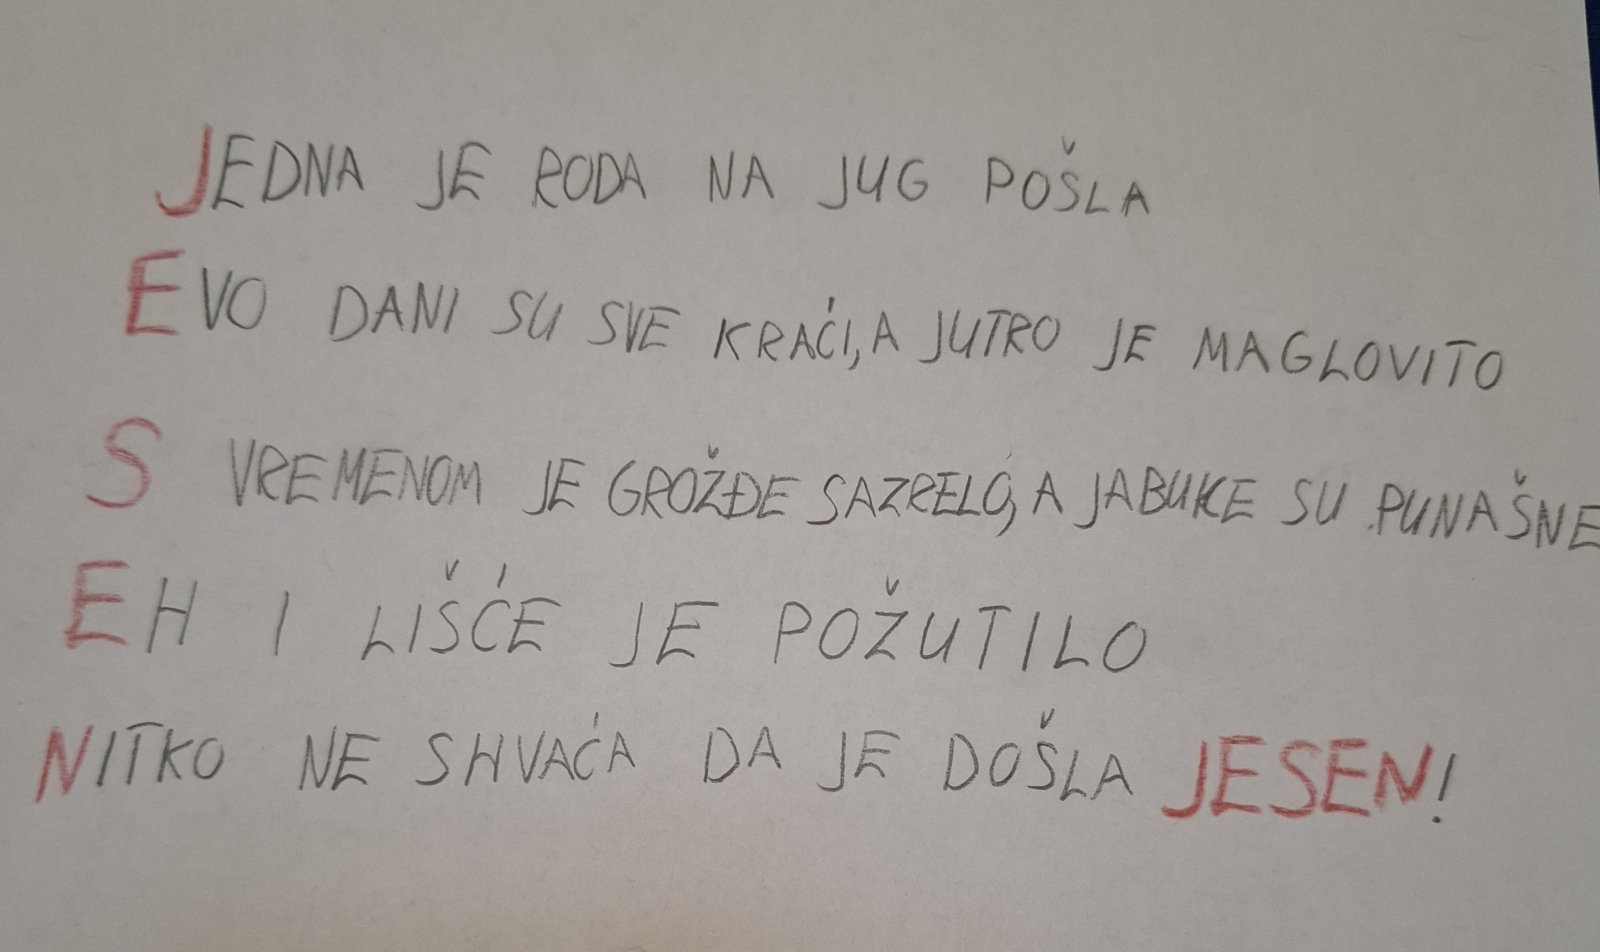 JEDNA JE RODA NA JUG POŠLA
EVO DANI SU SVE KRAĆI, A JUTRO JE MAGLOVITO
S VREMENOM JE GROŽĐE SAZRELO, A JABUKE SU PUNAŠNE
EH I LIŠĆE JE POŽUTILO
NITKO NE SHVAĆA DA JE DOŠLA JESEN!